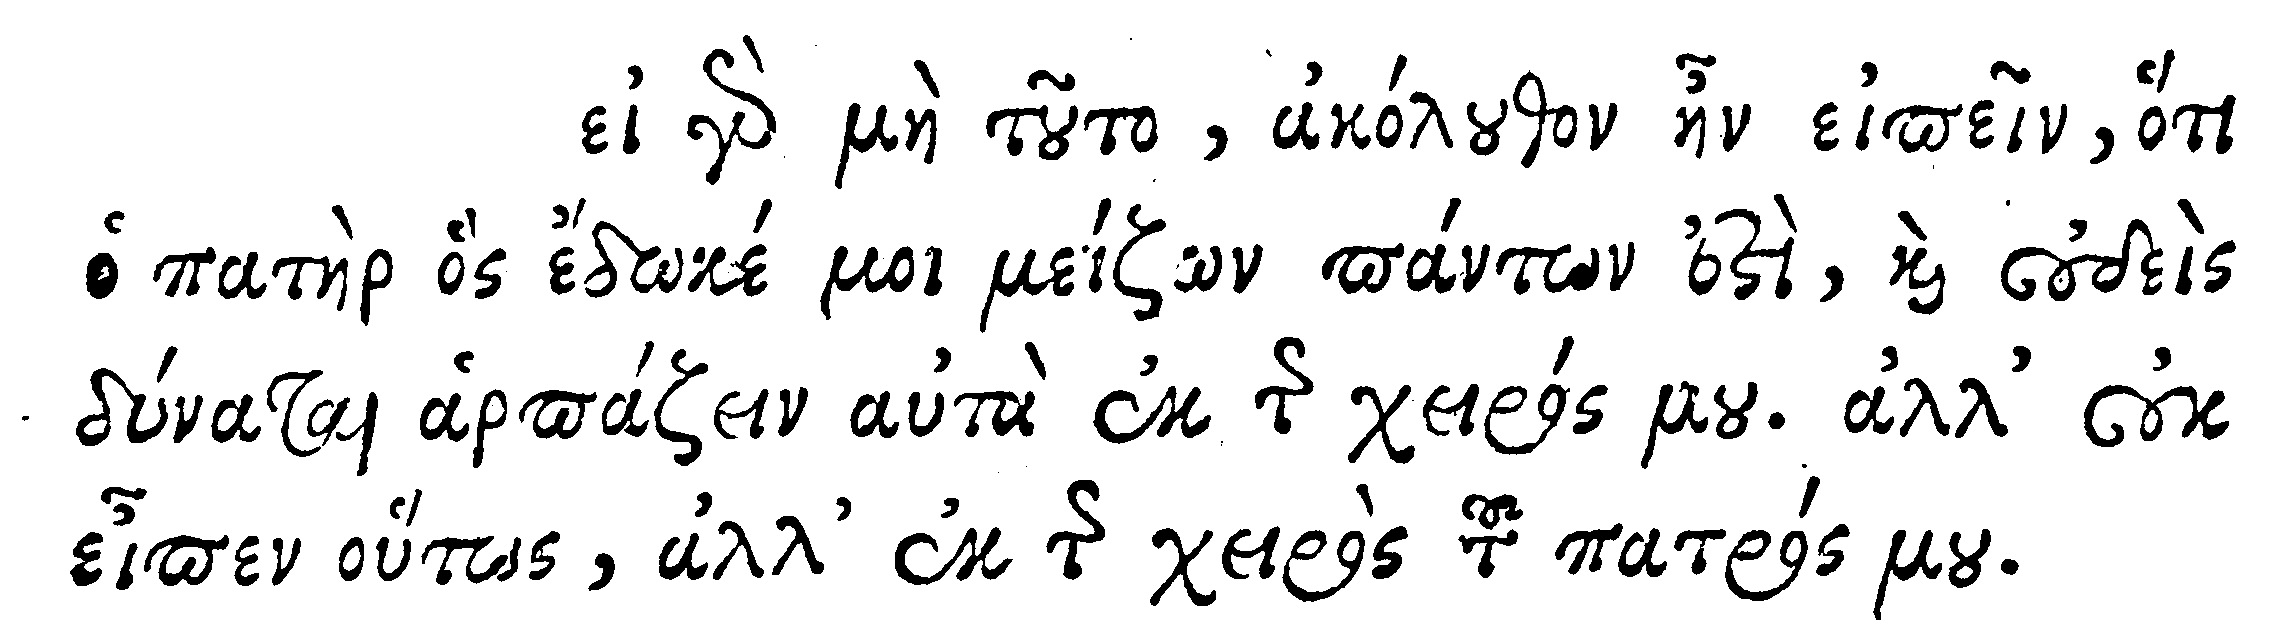 εἰ γὰρ μὴ τοῦτο, ἀκόλουθον ἦν εἰπεῖν, ὅτι
ὁ πατὴρ ὅς ἔδωκέ μοι μείζων πάντων ἐστὶ, καὶ οὐδεὶς
δύναται ἁρπάζειν αὐτὰ ἐκ τῆς χειρός μου. ἀλλ' οὐκ
εἶπεν οὕτως, ἀλλ' ἐκ τῆς χειρὸς τοῦ πατρός μου.